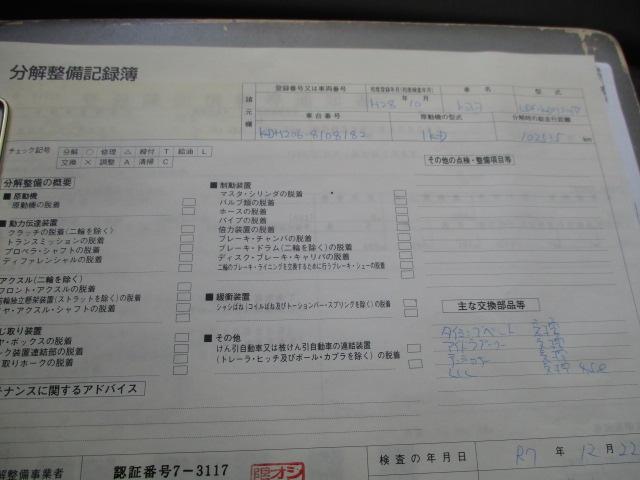 分解整備記録簿
諸元欄
登録番号又は車両番号 初度登録年月(初度検査年月) 車名 型式
H28年10月 トヨタ
車台番号 原動機の型式 分解時の総走行距離
KDH206-8108182 1KD 102535 km
チェック記号 分解 ○ 修理 △ 締付 T 給油 L
交換 × 調整 A 清掃 C
その他の点検・整備項目等
分解整備の概要
■ 原動機
原動機の脱着
■ 動力伝達装置
クラッチの脱着(二輪を除く)
トランスミッションの脱着
プロペラ・シャフトの脱着
ディファレンシャルの脱着
アクスル(二輪を除く)
フロント・アクスルの脱着
輪独立懸架装置(ストラットを除く)の脱着
ヤ・アクスル・シャフトの脱着
じ取り装置
ヤ・ボックスの脱着
ンク装置連結部の脱着
取りホークの脱着
■ 制動装置
マスタ・シリンダの脱着
バルブ類の脱着
ホースの脱着
パイプの脱着
倍力装置の脱着
ブレーキ・チャンバの脱着
ブレーキ・ドラム(二輪を除く)の脱着
ディスク・ブレーキ・キャリパの脱着
二輪のブレーキ・ライニングを交換するために行うブレーキ・シューの脱着
■ 緩衝装置
シャシばね(コイルばね及びトーションバー・スプリングを除く)の脱着
■ その他
けん引自動車又は被けん引自動車の連結装置
(トレーラ・ヒッチ及びボール・カプラを除く)の脱着
主な交換部品等
交換
交換
交換
交換
テナンスに関するアドバイス
解整備事業者
認証番号7-3117
検査の年月日 R7年12月22